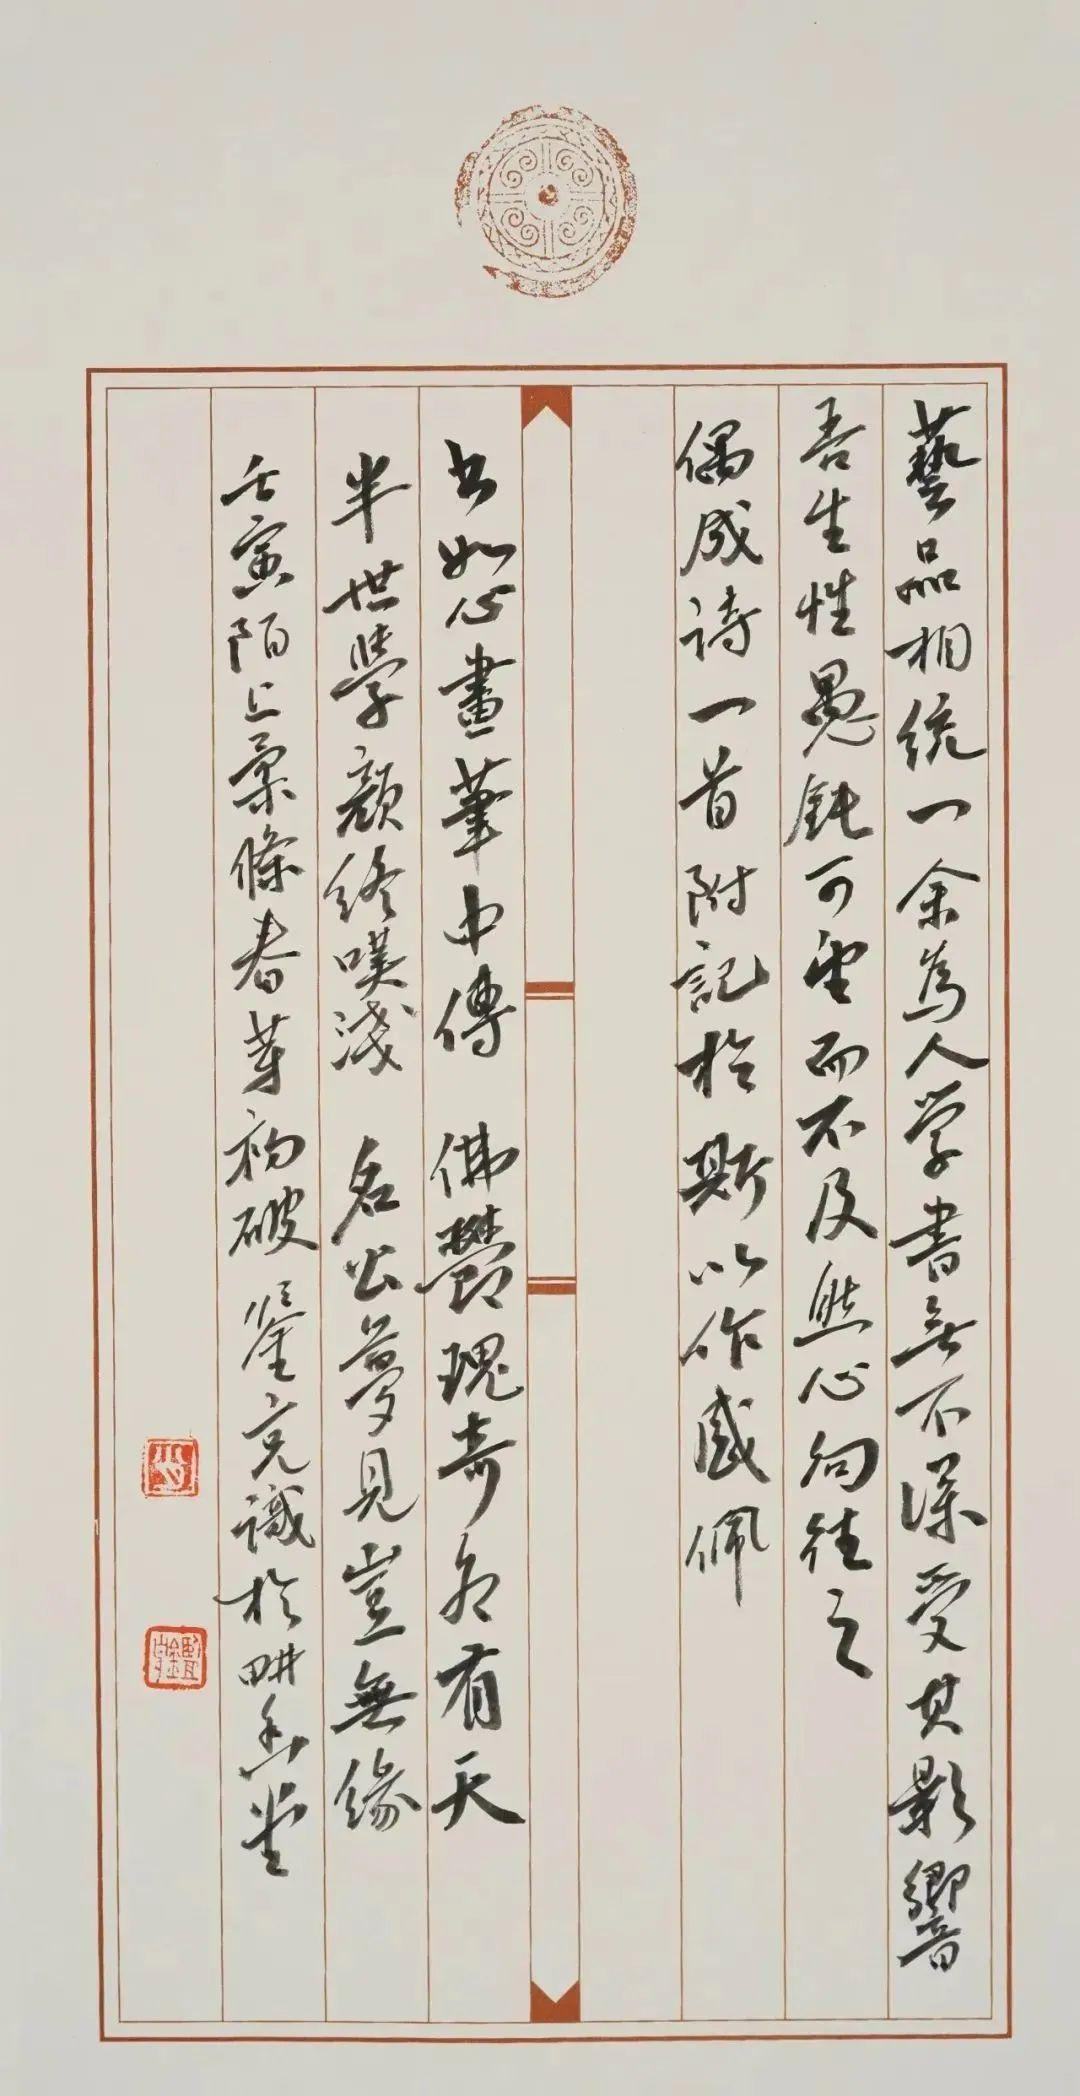 藝品相統一余為人学書無不深受其影響
吾生性愚鈍可望而不及然心向往之
偶成詩一首附記於斯以作感佩
書如心畫筆中傳 佛鬱瑰奇各有天
半世學顏終嘆淺 名公夢見豈無緣
壬寅陌上柔條春芽初破 識於畊堂